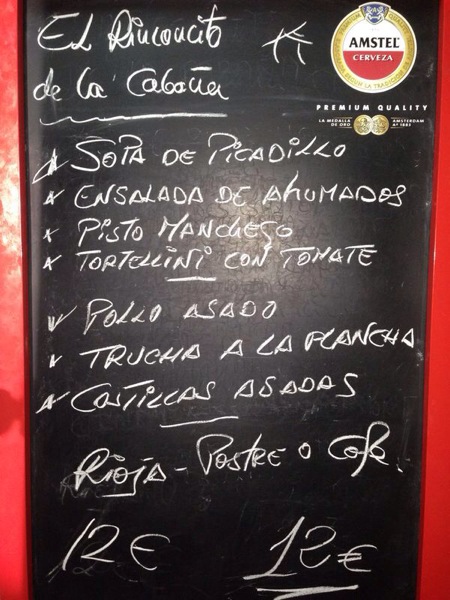 El Rinconcito
de la Cabaña
PREMIUM QUALITY
AMSTEL
CERVEZA
PREMIUM QUALITY
LA MEDALLA DE ORO AMSTERDAM Aº 1883
SOPA DE PICADILLO
ENSALADA DE AHUMADOS
PISTO MANCHEGO
TORTELLINI CON TOMATE
POLLO ASADO
TRUCHA A LA PLANCHA
COSTILLAS ASADAS
RIOJA - POSTRE O Café.
12€ 12€